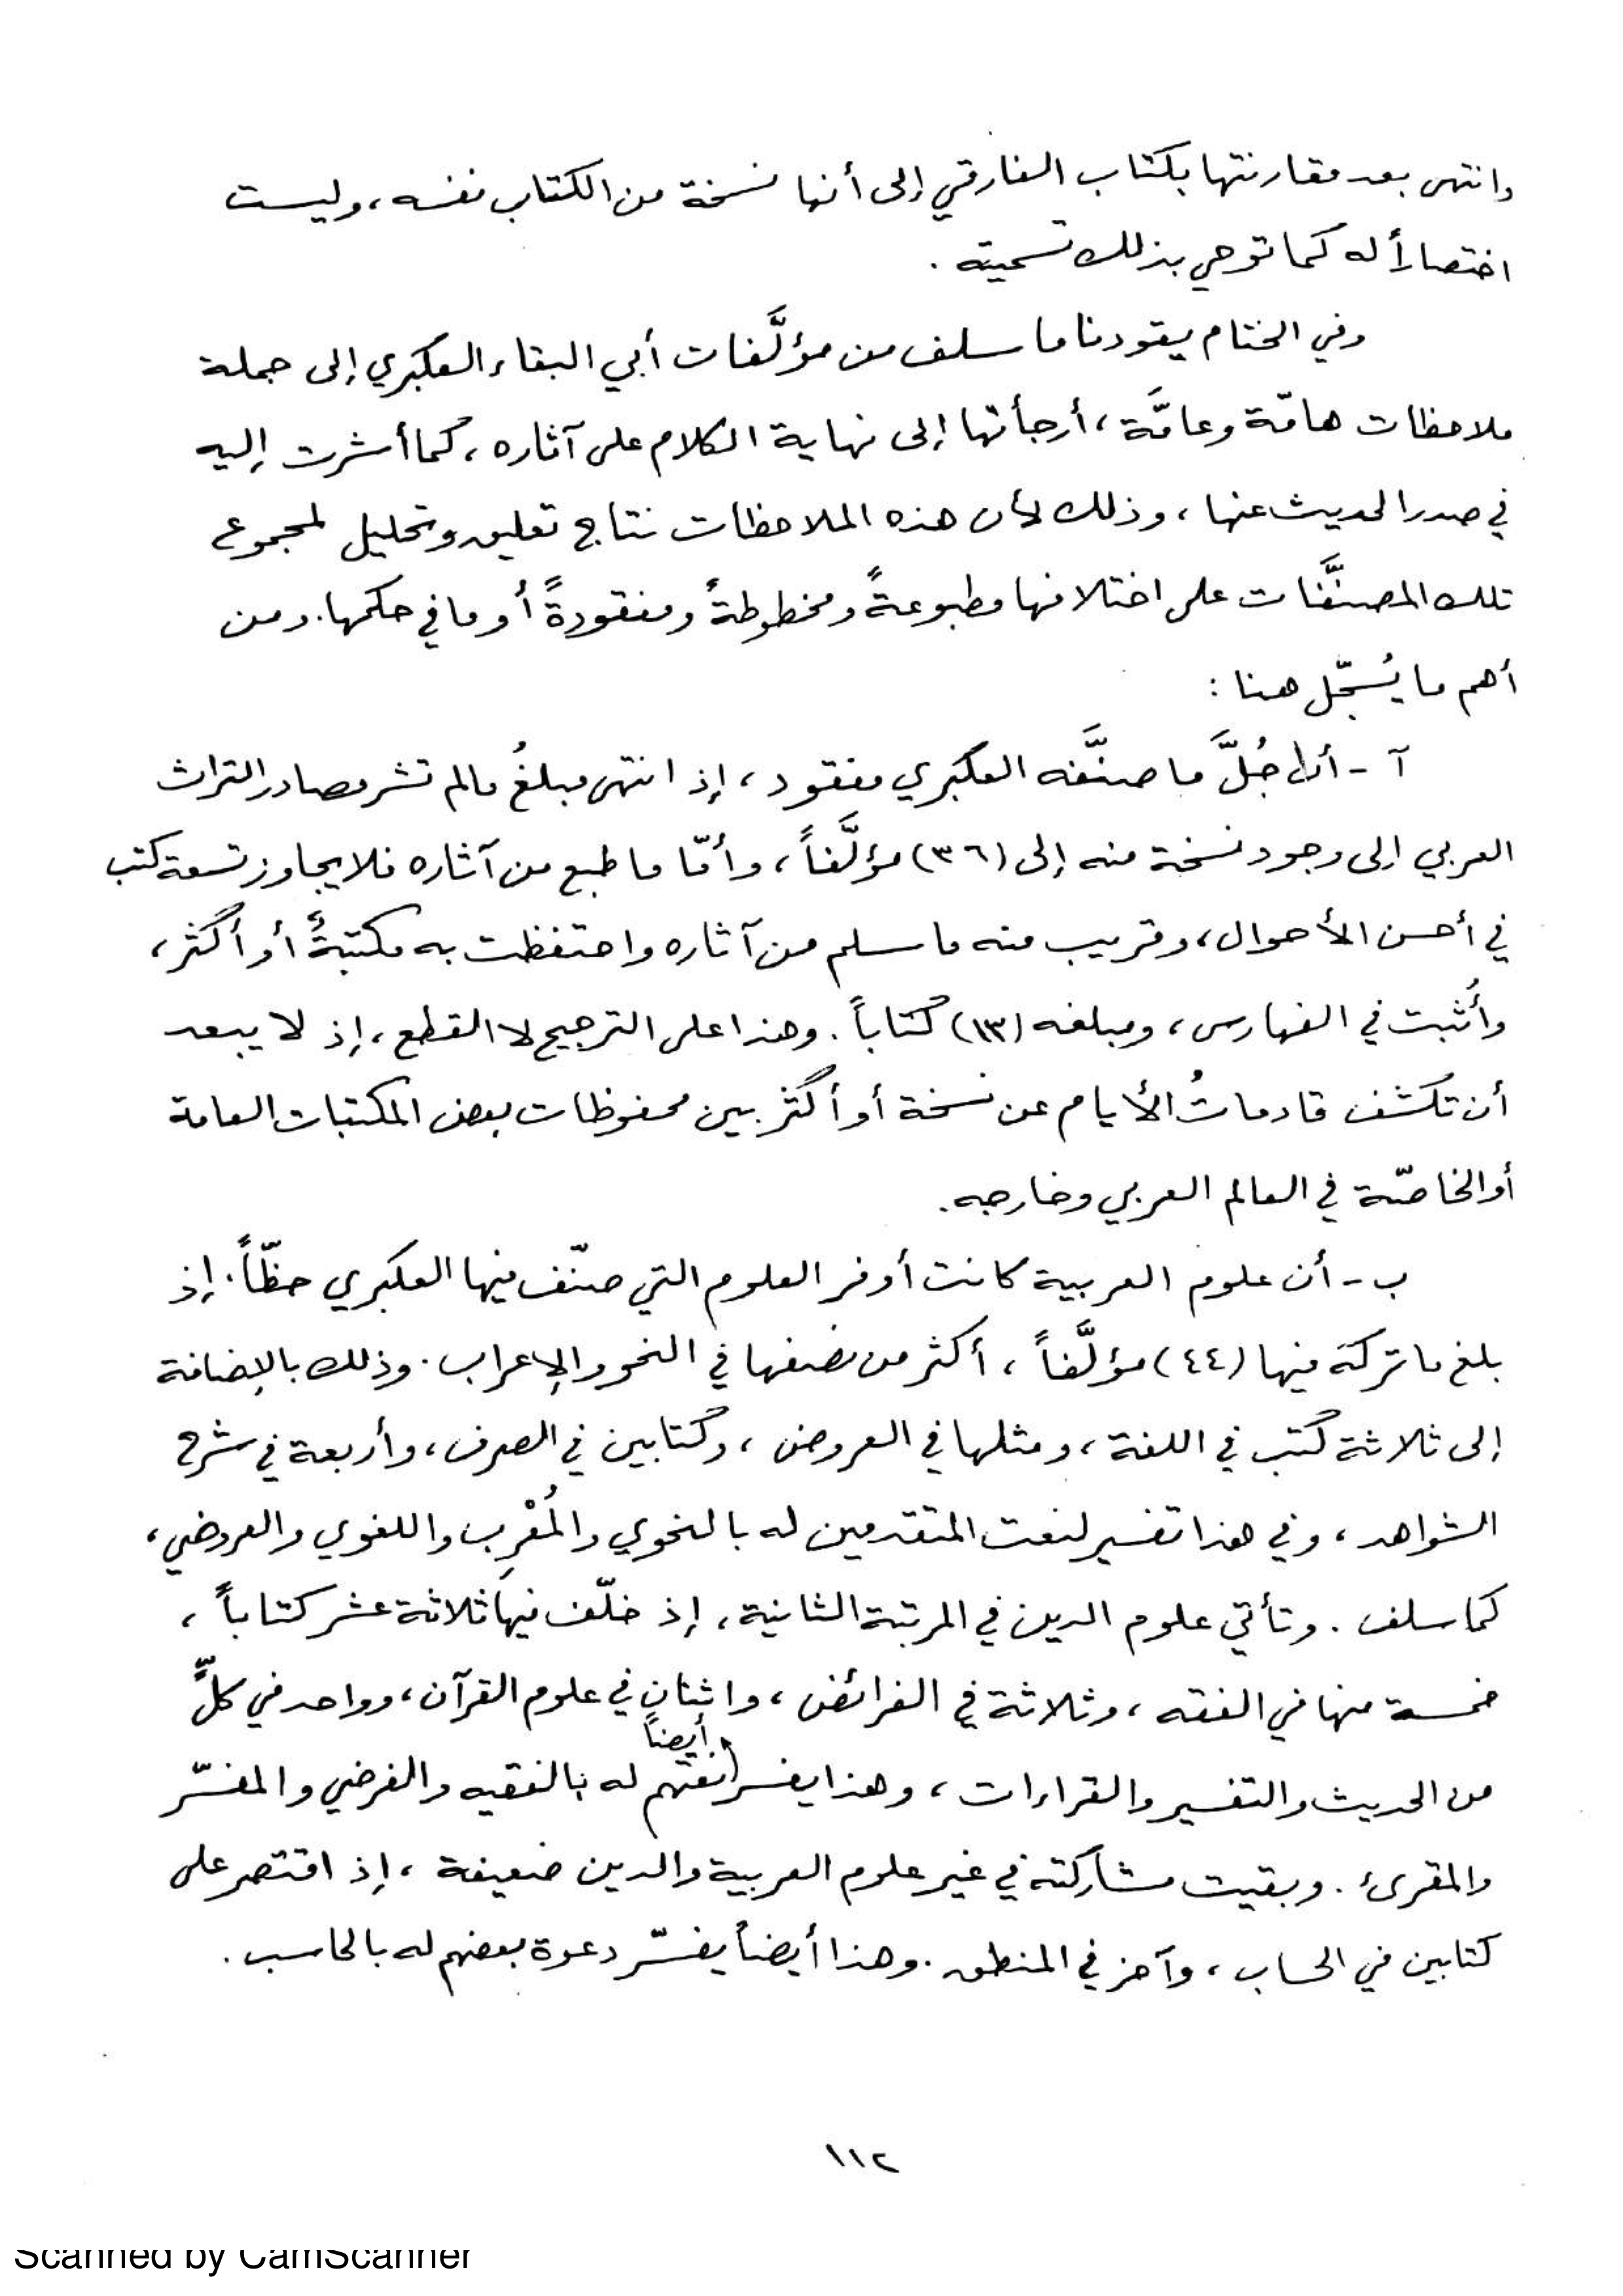 وانتهى بعد مقارنتها بكتاب الفارقي إلى أنها نسخة من الكتاب نفسه، وليست
اختصاراً له كما توحي بذلك تسميته.
وفي الختام يقودنا ما سلف من مؤلَّفات أبي البقاء العكبري إلى جملة
ملاحظات هامّة وعامَّة، أرجأتها إلى نهاية الكلام على آثاره، كما أشرت إليه
في صدر الحديث عنها، وذلك لأن هذه الملاحظات نتاج تعليق وتحليل لمجموع
تلك المصنَّفات على اختلافها مطبوعةً ومخطوطةً ومفقودةً أو ما في حكمها. ومن
أهم ما يُسجّل هنا:
آ - أن جُلَّ ما صنَّفه العكبري مفقود، إذ انتهى مبلغُ مالم تشر مصادر التراث
العربي إلى وجود نسخة منه إلى (٣٦) مؤلَّفاً، وأمّا ما طبع من آثاره فلا يجاوز تسعة كتب
في أحسن الأحوال، وقريب منه ما سلم من آثاره واحتفظت به مكتبةٌ أو أكثر،
وأُثبت في الفهارس، ومبلغه (١٣) كتاباً. وهذا على الترجيح لا القطع، إذ لا يبعد
أن تكشف قادماتُ الأيام عن نسخة أو أكثر بين محفوظات بعض المكتبات العامة
أو الخاصّة في العالم العربي وخارجه.
ب - أن علوم العربية كانت أوفر العلوم التي صنّف فيها العكبري حظّاً. إذ
بلغ ما تركه فيها (٤٤) مؤلَّفاً، أكثر من نصفها في النحو والإعراب. وذلك بالإضافة
إلى ثلاثة كتب في اللغة، ومثلها في العروض، وكتابين في الصرف، وأربعة في شرح
الشواهد، وفي هذا تفسير لنعت المتقدمين له بالنحوي والمُعْرِب واللغوي والعروضي،
كما سلف. وتأتي علوم الدين في المرتبة الثانية، إذ خلّف فيها ثلاثة عشر كتاباً،
خمسة منها في الفقه، وثلاثة في الفرائض، واثنان في علوم القرآن، وواحد في كلٍّ
من الحديث والتفسير والقراءات، وهذا يفسر أيضاً نعتهم له بالفقيه والفرضي والمفسّر
والمقرئ. وبقيت مشاركته في غير علوم العربية والدين ضعيفة، إذ اقتصر على
كتابين في الحساب، وآخر في المنطق. وهذا أيضاً يفسّر دعوة بعضهم له بالحاسب.
١١٢
Scanned by CamScanner